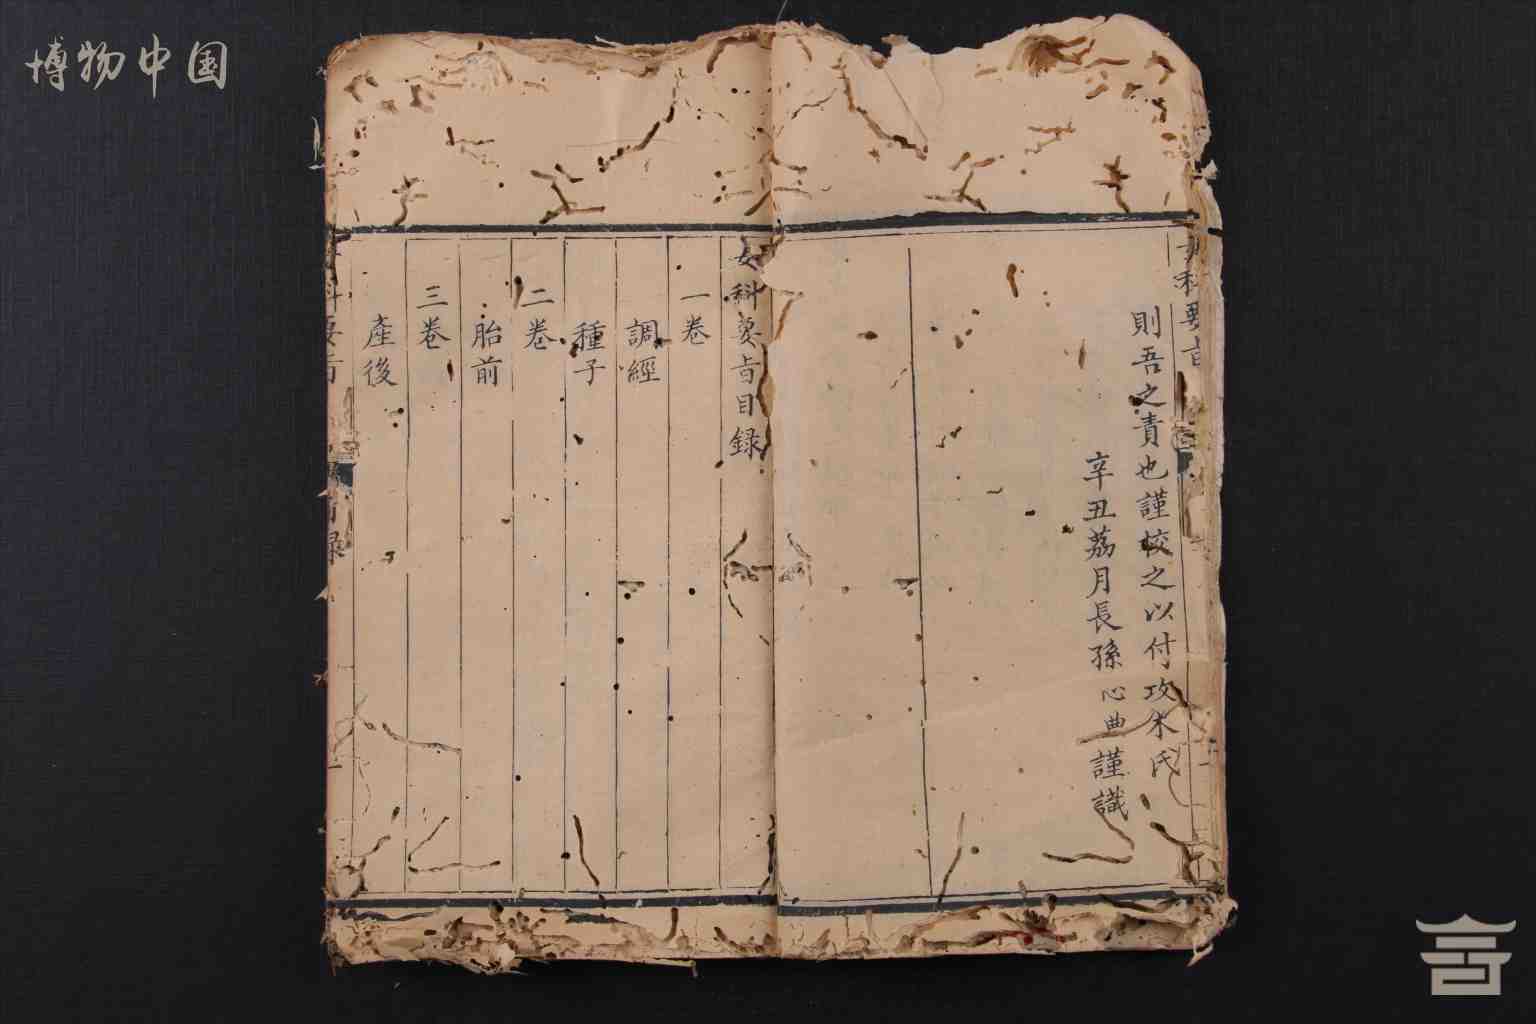 博物中国
科要旨
則吾之責也謹校之以付攻木氏
辛丑荔月長孫心典謹識
女科要旨目録
一卷
調經
種子
二卷
胎前
三卷
產後